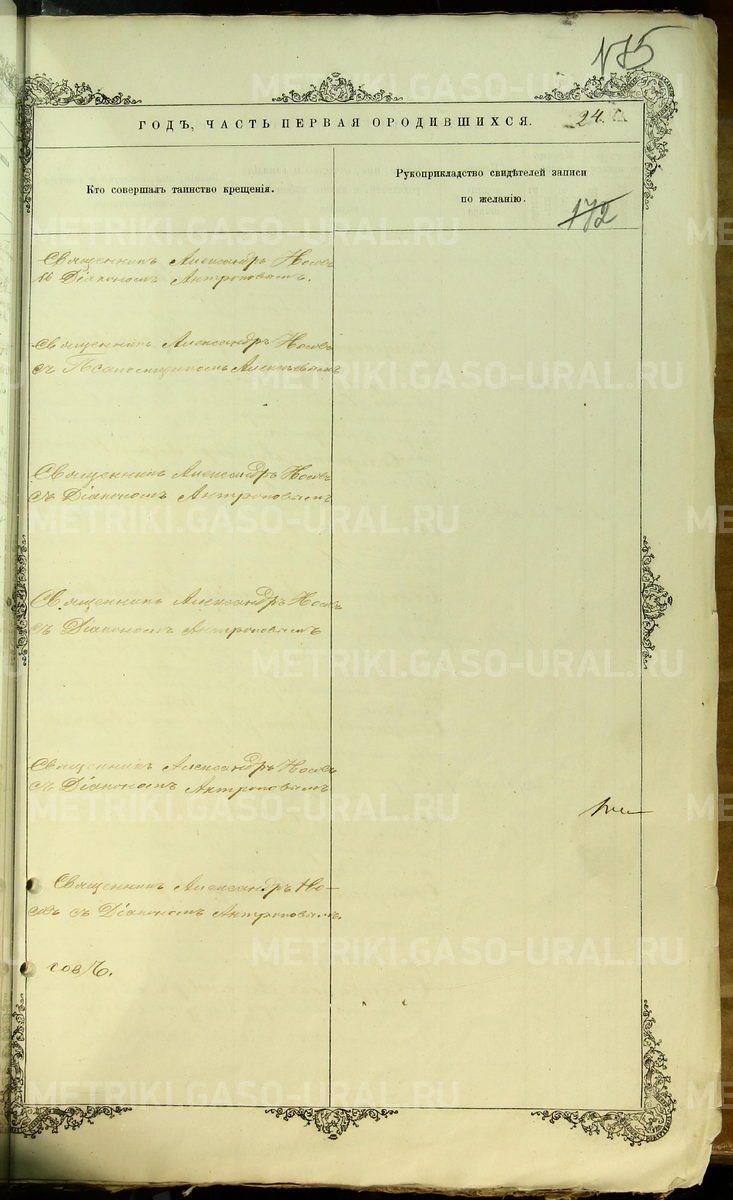 175
ГОДЪ, ЧАСТЬ ПЕРВАЯ О РОДИВШИХСЯ.
24.
Кто совершалъ таинство крещенія.
Рукоприкладство свидѣтелей записи
по желанію.
172
Священникъ Александръ Носовъ
съ Діакономъ Антроповымъ.
Священникъ Александръ Носовъ
съ Псаломщикомъ
Священникъ Александръ Носовъ
съ Діакономъ Антроповымъ
Священникъ Александръ Носовъ
съ Діакономъ Антроповымъ
Священникъ Александръ Носовъ
съ Діакономъ Антроповымъ
Священникъ Александръ Но-
совъ съ Діакономъ Антроповымъ.
METRIKI.GASO-URAL.RU